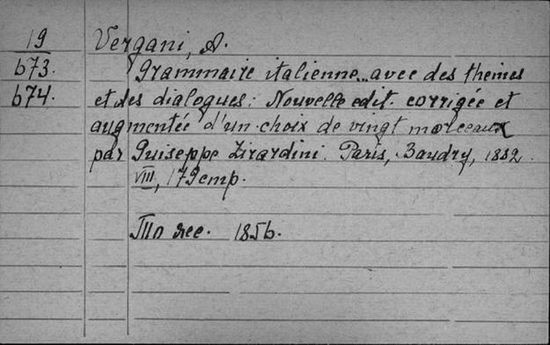 19
673.
674.
Vergani, A.
Grammaire italienne... avec des themes
et des dialogues: Nouvelle edit. corrigée et
augmentée d'un choix de vingt morceaux
par Guiseppe Zirardini. Paris, Baudry,
VIII,
1856.